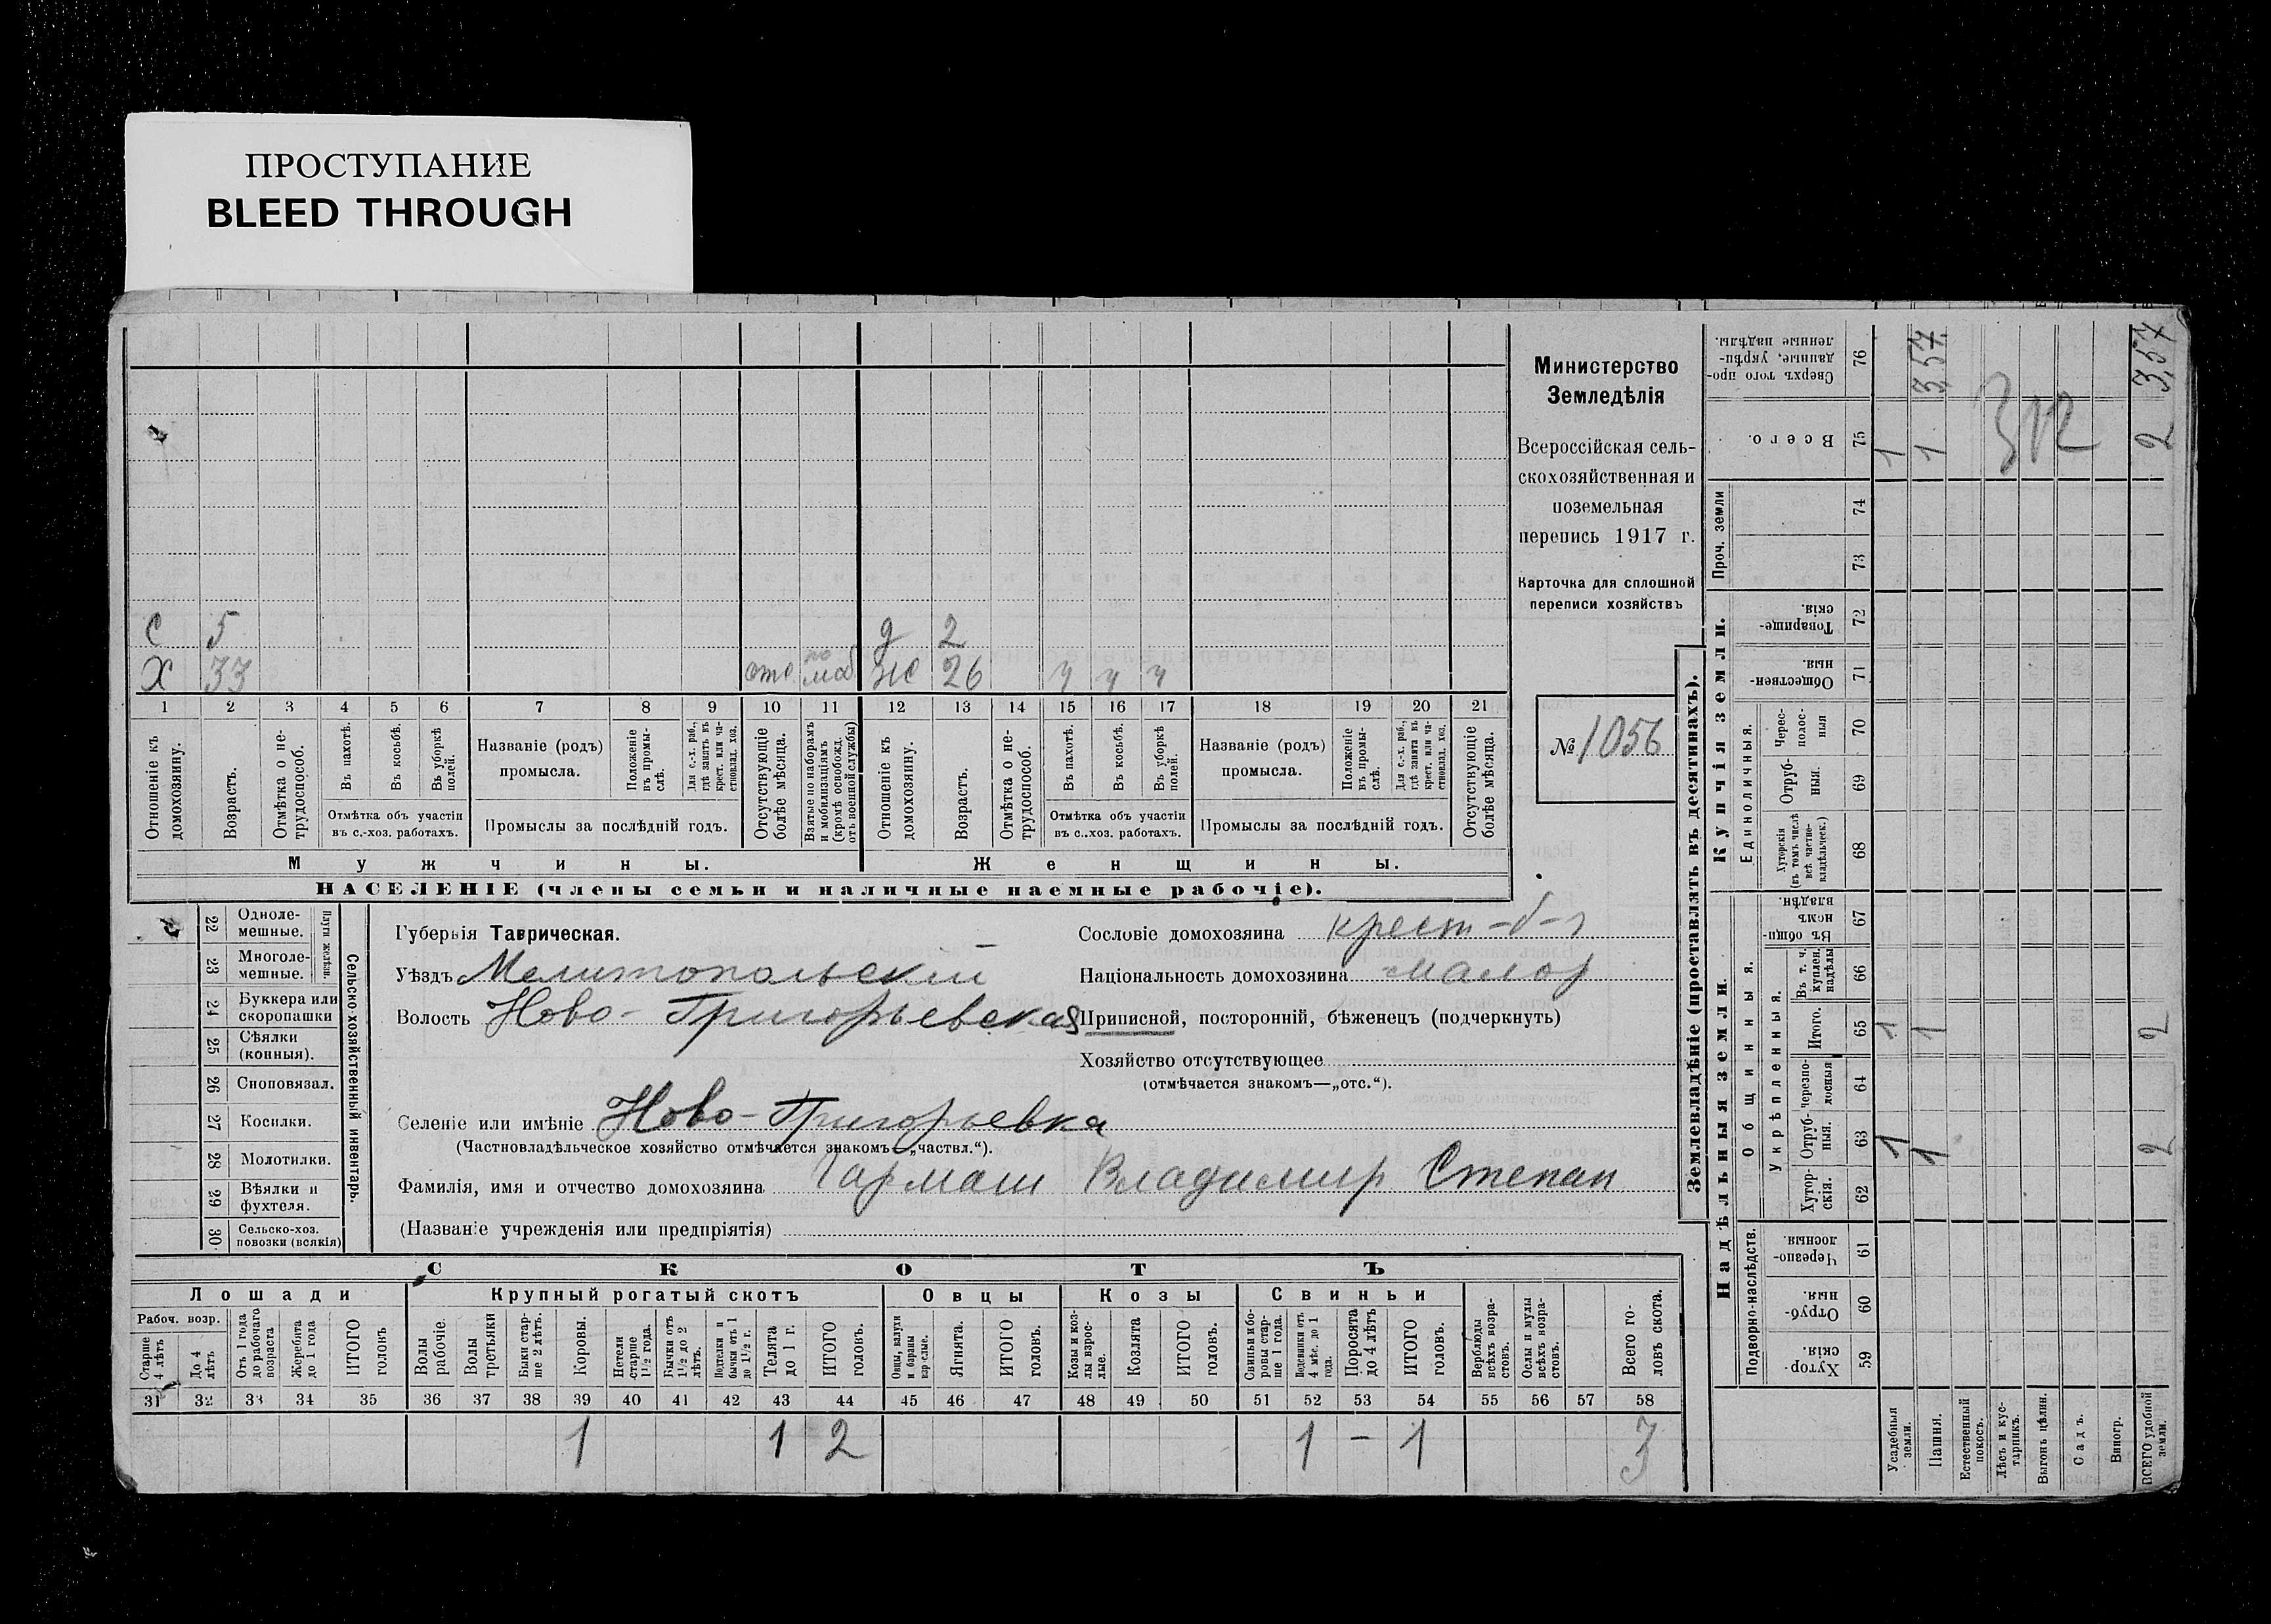 ПРОСТУПАНИЕ
BLEED THROUGH
С 5 д 2
Х 33 отс по моб же 26 ч ч ч
1 2 3 4 5 6 7 8 9 10 11 12 13 14 15 16 17 18 19 20 21
Отношеніе къ домохозяину.
Возрастъ.
Отмѣтка о не-трудоспособ.
Въ пахотѣ.
Въ косьбѣ.
Въ уборкѣ полей.
Отмѣтка объ участіи въ с.-хоз. работахъ.
Названіе (родъ) промысла.
Положеніе въ промы-слѣ.
Для с.-х. раб., гдѣ занятъ въ крест. или ча-стновлад. хоз.
Промыслы за послѣдній годъ.
Отсутствующіе болѣе мѣсяца.
Взятые по наборамъ и мобилизаціямъ (кромѣ освобожд. отъ военной службы)
Отношеніе къ домохозяину.
Возрастъ.
Отмѣтка о не-трудоспособ.
Въ пахотѣ.
Въ косьбѣ.
Въ уборкѣ полей.
Отмѣтка объ участіи въ с..хоз. работахъ.
Названіе (родъ) промысла.
Положеніе въ промы-слѣ.
Для с.-х. раб., гдѣ занята въ крест. или ча-стновлад. хоз.
Промыслы за послѣдній годъ.
Отсутствующіе болѣе мѣсяца.
Мужчины.
Женщины.
НАСЕЛЕНІЕ (члены семьи и наличные наемные рабочіе).
Министерство
Земледѣлія
Всероссійская сель-
скохозяйственная и
поземельная
перепись 1917 г.
Карточка для сплошной
переписи хозяйствъ
№ 1056
22 Одноле-мешные.
23 Многоле-мешные.
Плуги желѣзн.
24 Буккера или скоропашки
25 Сѣялки (конныя).
26 Сноповязал.
27 Косилки.
28 Молотилки.
29 Вѣялки и фухтеля.
30 Сельско-хоз. повозки (всякія)
Сельско-хозяйственный инвентарь.
Губернія Таврическая.
Уѣздъ Мелитопольскій
Волость Ново-Григорьевская
Селеніе или имѣніе Ново-Григорьевка
(Частновладѣльческое хозяйство отмѣчается знакомъ—„частвл.“).
Фамилія, имя и отчество домохозяина Гармаш Владимир Степан
(Названіе учрежденія или предпріятія)
Сословіе домохозяина крест-
Національность домохозяина малор
Приписной, посторонній, бѣженецъ (подчеркнуть)
Хозяйство отсутствующее
(отмѣчается знакомъ—„отс.“).
СКОТЪ
Лошади Крупный рогатый скотъ Овцы Козы Свиньи
Рабоч. возр.
Старше 4 лѣтъ
До 4 лѣтъ
Отъ 1 года до рабочаго возраста
Жеребята до 1 года
ИТОГО головъ
Волы рабочіе.
Волы третьяки
Быки стар-ше 2 лѣтъ.
Коровы.
Нетели старше 1½ года.
Бычки отъ 1½ до 2 лѣтъ.
Подтелки и бычки отъ 1 до 1½ г.
Телята до 1 г.
ИТОГО головъ.
Овцы, валухи и бараны взрослые.
Ягнята.
ИТОГО головъ.
Козы и коз-лы взрос-лые.
Козлята
ИТОГО головъ.
Свиньи и бо-ровы стар-ше 1 года.
Подсвинки отъ 4 мѣс. до 1 года.
Поросята до 4 лѣтъ
ИТОГО головъ.
Верблюды всѣхъ возра-стовъ.
Ослы и мулы всѣхъ возра-стовъ.
Всего го-ловъ скота.
31 32 33 34 35 36 37 38 39 40 41 42 43 44 45 46 47 48 49 50 51 52 53 54 55 56 57 58
1 1 2 1 – 1 3
Землевладѣніе (проставлять въ десятинахъ).
Надѣльныя земли.
Купчія земли.
Проч. земли
Подворно-наслѣдств.
Общинныя.
Укрѣпленныя.
Единоличныя.
Хутор-скія. 59
Отруб-ныя. 60
Черезпо-лосныя. 61
Хутор-скія. 62
Отруб-ныя. 63
Черезпо-лосныя 64
Итого. 65
Въ т. ч. куплен. надѣлы 66
Въ общи-номъ владѣн. 67
Хуторскія (въ томъ числѣ всѣ частно-владѣльческ.) 68
Отруб-ныя. 69
Черес-полос-ныя 70
Обществен-ныя. 71
Товарище-скія. 72
73
74
Всего. 75
Сверхъ того про-данные, укрѣп-ленные надѣлы. 76
Усадебныя земли. 1 1 1
Пашня. 1 1 1 3,57
Естественный покосъ.
Лѣсъ и кус-тарникъ.
Выгонъ цѣлин.
Садъ.
Виногр.
ВСЕГО удобной земли. 2 2 2 3,57
312